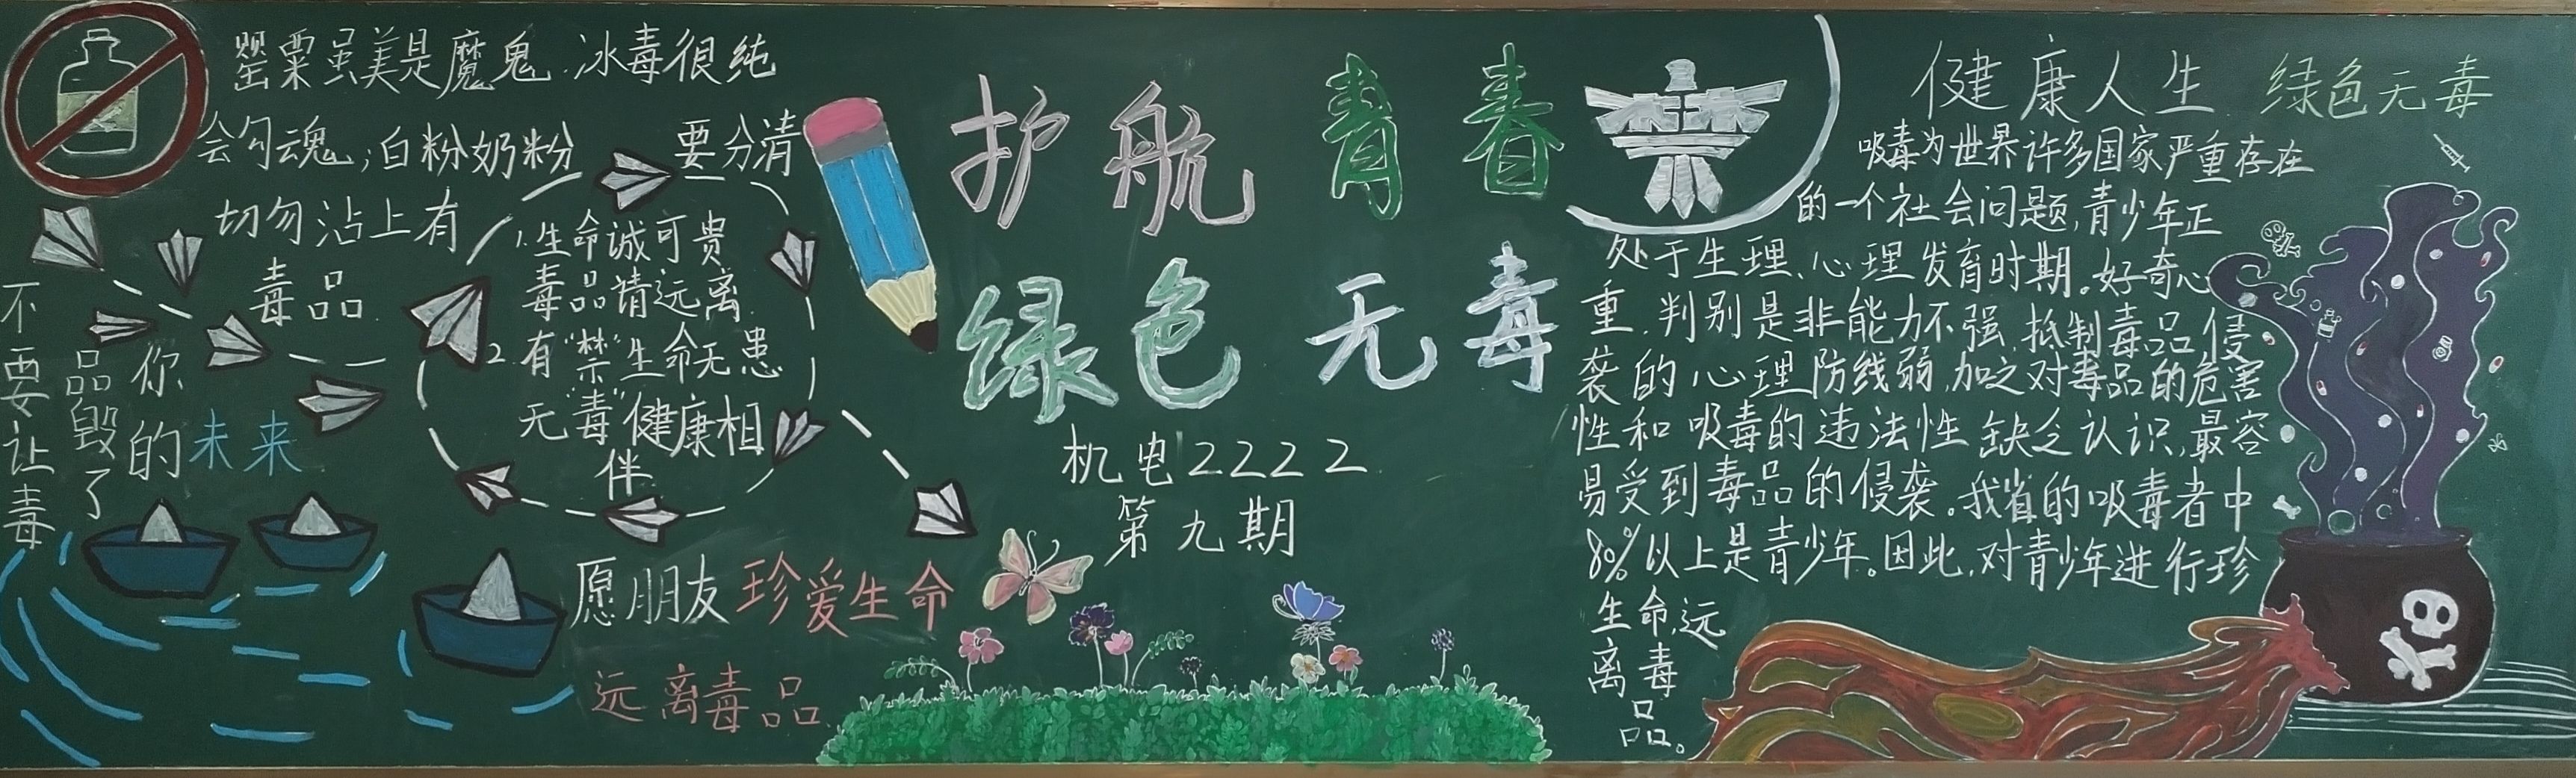 罂粟虽美是魔鬼.冰毒很纯
会勾魂;白粉奶粉要分清
切勿沾上有
毒品.
1.生命诚可贵
毒品请远离.
2.有"禁"生命无患
无"毒"健康相
伴.
不要让毒
品毁了
你的未来
愿朋友珍爱生命
远离毒品.
护航青春
绿色无毒
机电2222
第九期
禁
健康人生 绿色无毒
吸毒为世界许多国家严重存在
的一个社会问题,青少年正
处于生理、心理发育时期。好奇心
重.判别是非能力不强,抵制毒品侵
袭的心理防线弱,加之对毒品的危害
性和吸毒的违法性缺乏认识,最容
易受到毒品的侵袭。我省的吸毒者中
80%以上是青少年。因此,对青少年进行珍
生命,远
离毒
品。